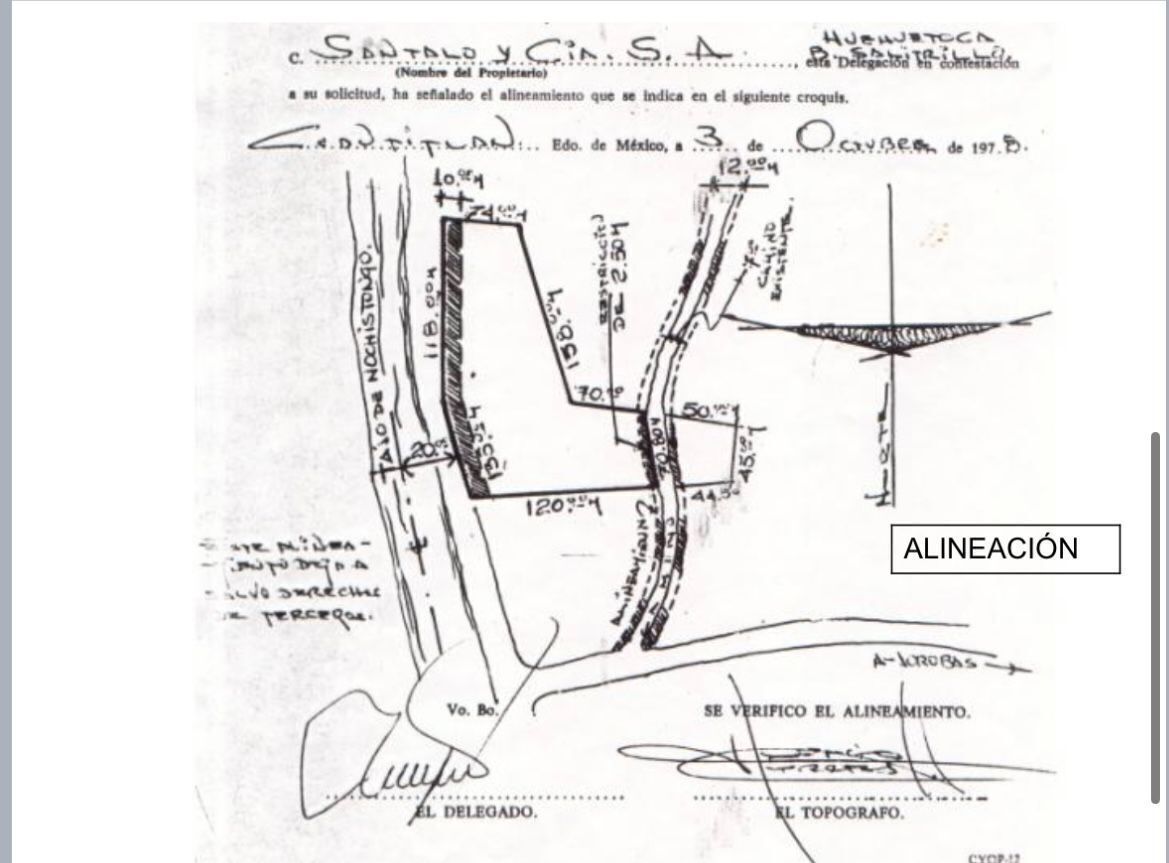 HUEHUETOCA
C. SANTALO Y CIA. S. A. B. SALITRILLO, esta Delegación en contestación
(Nombre del Propietario)
a su solicitud, ha señalado el alineamiento que se indica en el siguiente croquis.
CUAUTITLAN Edo. de México, a 3 de OCTUBRE de 1978.
10.00 M
12.00 M
74.00 M
RESTRICCION
DE 2.50 M
CAMINO
EXISTENTE.
TAJO DE NOCHISTONGO.
118.00 M
158.00 M
70.00
50.00 M
20.00
70.80 M
45.00 M
NORTE
120.00 M
44.50
ALINEAMIENTO
CAMINO
ALINEACIÓN
ESTE ALINEA-
MIENTO DEJA A
SALVO DERECHOS
DE TERCEROS.
A-JOROBAS
Vo. Bo.
SE VERIFICO EL ALINEAMIENTO.
EL DELEGADO.
EL TOPOGRAFO.
CYOP-12